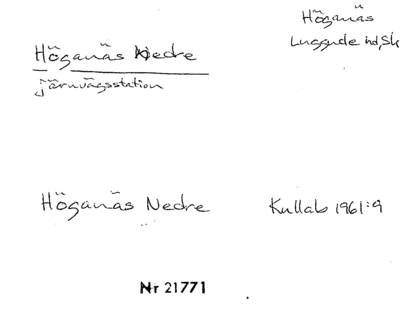 Höganäs
Luggude hd, Sk
Höganäs Nedre
järnvägsstation
Höganäs Nedre
Kullab 1961:9
Nr 21771